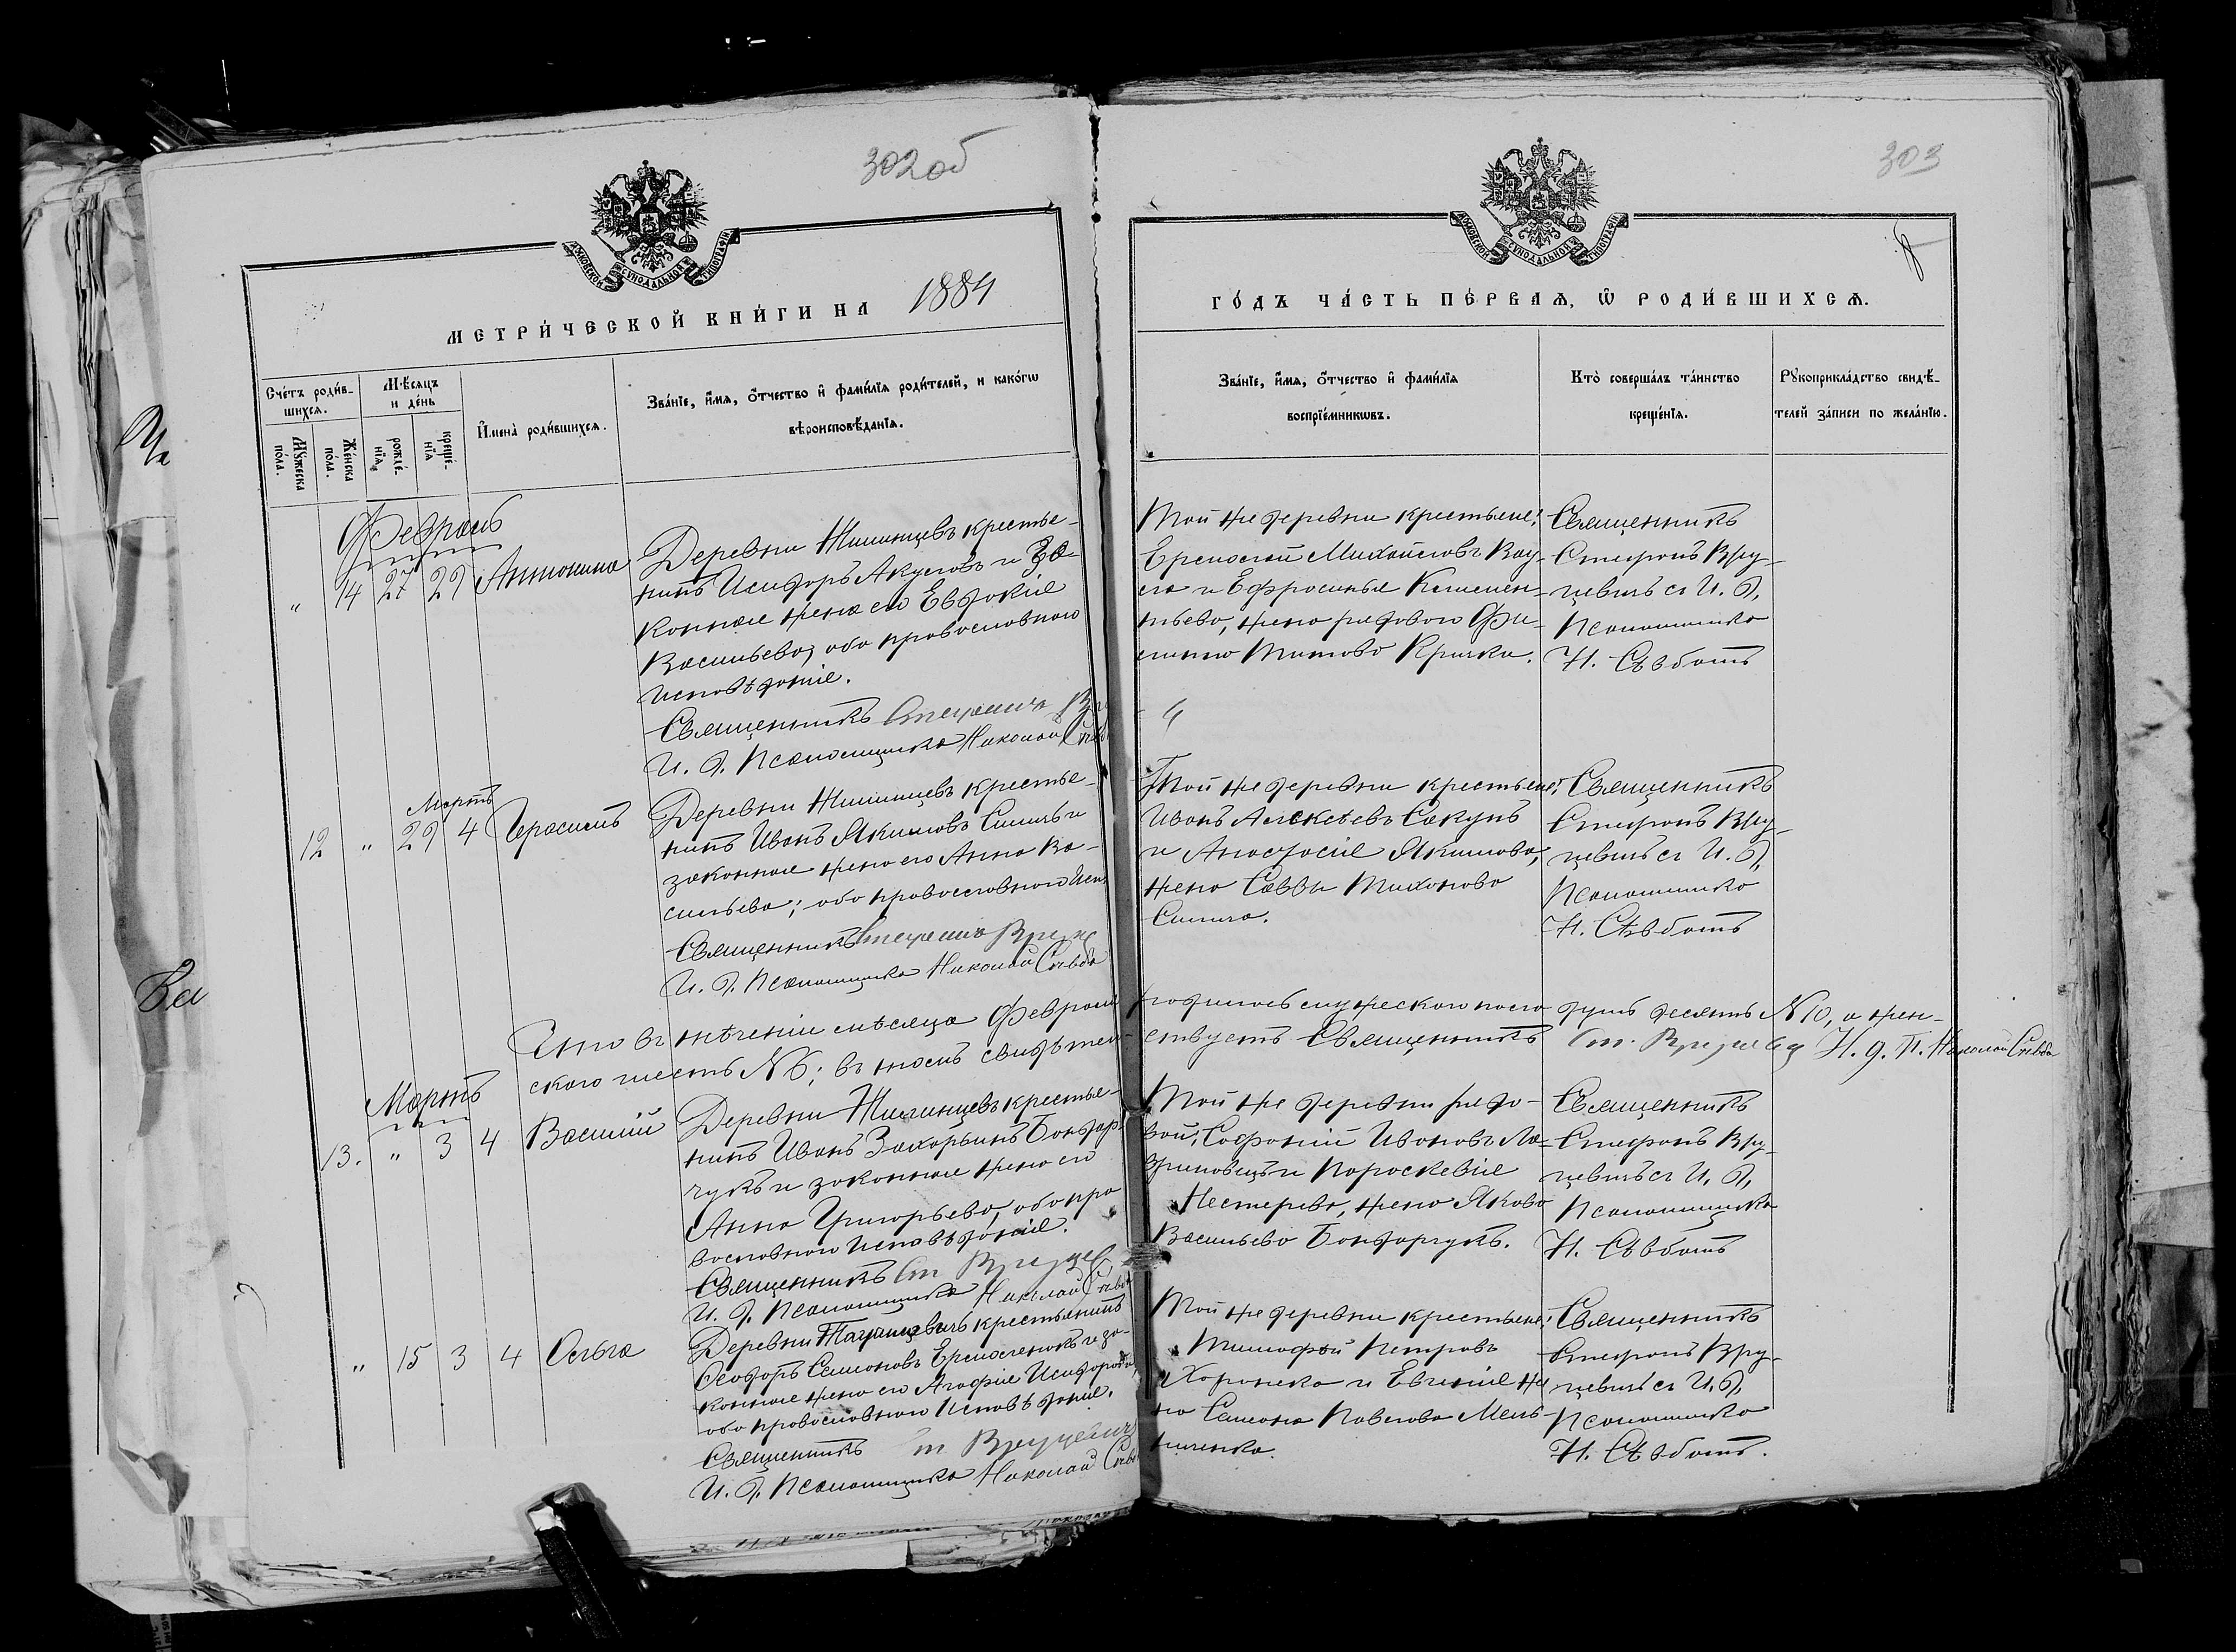 302 об
МОСКОВСКОЙ СѴНОДАЛЬНОЙ ТИПОГРАФІИ
МЕТРИ́ЧЕСКОЙ КНИ́ГИ НА 1884
Сче́тъ роди́в-
шихсѧ.
Мѣ́сѧцъ
и де́нь
Мꙋ́жеска
по́ла.
Же́нска
по́ла.
рожде́-
нїѧ
креще́-
нїѧ
И҆мена̀ роди́вшихсѧ.
Зва́нїе, и҆́мѧ, ѻ҆́тчество и҆ фами́лїѧ роди́телей, и како́гѡ
вѣроисповѣ́данїѧ.
Февраль
" 14 27 29 Антонина
Деревни Жилинцевъ крестья-
нинъ Исидоръ Акуловъ и за-
конная жена его Евдокія
Васильева, оба православнаго
исповѣданія.
Священникъ Стефанъ
И. д. Псаломщика Николай
Мартъ
12 " 29 4 Герасимъ
Деревни Жилинцевъ крестья-
нинъ Иванъ Якимовъ Силичъ и
законная жена его Анна Ва-
сильева; оба православнаго Исп.
Священникъ Стефанъ
И. д. Псаломщика Николай
Итого въ теченіи мѣсяца Февраля
скаго шесть N 6; въ томъ свидѣтель-
Мартъ
13. " 3 4 Василій
Деревни Жилинцевъ крестья-
нинъ Иванъ Захарьинъ Бондар-
чукъ и законная жена его
Анна Григорьева, оба пра
вославнаго исповѣданія.
Священникъ Ст
И. д. Псаломщика Николай
" 15 3 4 Ольга
Деревни крестьянинъ
Ѳеодоръ Семоновъ и за-
конная жена его Агафія Исидорова,
оба православнаго исповѣданія.
Священникъ Ст
И. д. Псаломщика Николай
303
МОСКОВСКОЙ СѴНОДАЛЬНОЙ ТИПОГРАФІИ
ГО́ДЪ ЧА́СТЬ ПЕ́РВАѦ, Ѡ҆ РОДИ́ВШИХСѦ.
Зва́нїе, и҆́мѧ, ѻ҆́тчество и҆ фами́лїѧ
воспрїе́мникѡвъ.
Кто̀ соверша́лъ та́инство
креще́нїѧ.
Рꙋкоприкла́дство свидѣ́-
телей за́писи по жела́нїю.
Той же деревни крестьяне:
Ермолай Михайловъ Кау-
ла и Ефросинья Клемен-
тьева, жена рядового Фи-
липпа Титова Кричка.
Священникъ
Стефанъ Вру-
цевичъ съ И. д.
Псаломщика
Н. Съвботъ
Той же деревни крестьяне:
Иванъ Алексѣевъ Сакунъ
и Анастасія Якимова,
жена Саввы Тихонова
Силича.
Священникъ
Стефанъ Вру-
цевичъ съ И. д.
Псаломщика
Н. Съвботъ
родилось мужескаго пола душъ десять N 10, а жен-
ствуетъ Священникъ Ст. И. д. П. Николай
Той же деревни рядо-
вой, Софоній Ивановъ Ла-
и Параскевія
Нестерева, жена Якова
Васильева Бондарчукъ.
Священникъ
Стефанъ Вру-
цевичъ съ И. д.
Псаломщика
Н. Съвботъ
Той же деревни крестьяне:
Тимофей Петровъ
Харонека и Евгенія же
на Семона Павлова Мель-
ниченка.
Священникъ
Стефанъ Вру-
цевичъ съ И. д.
Псаломщика
Н. Съвботъ.